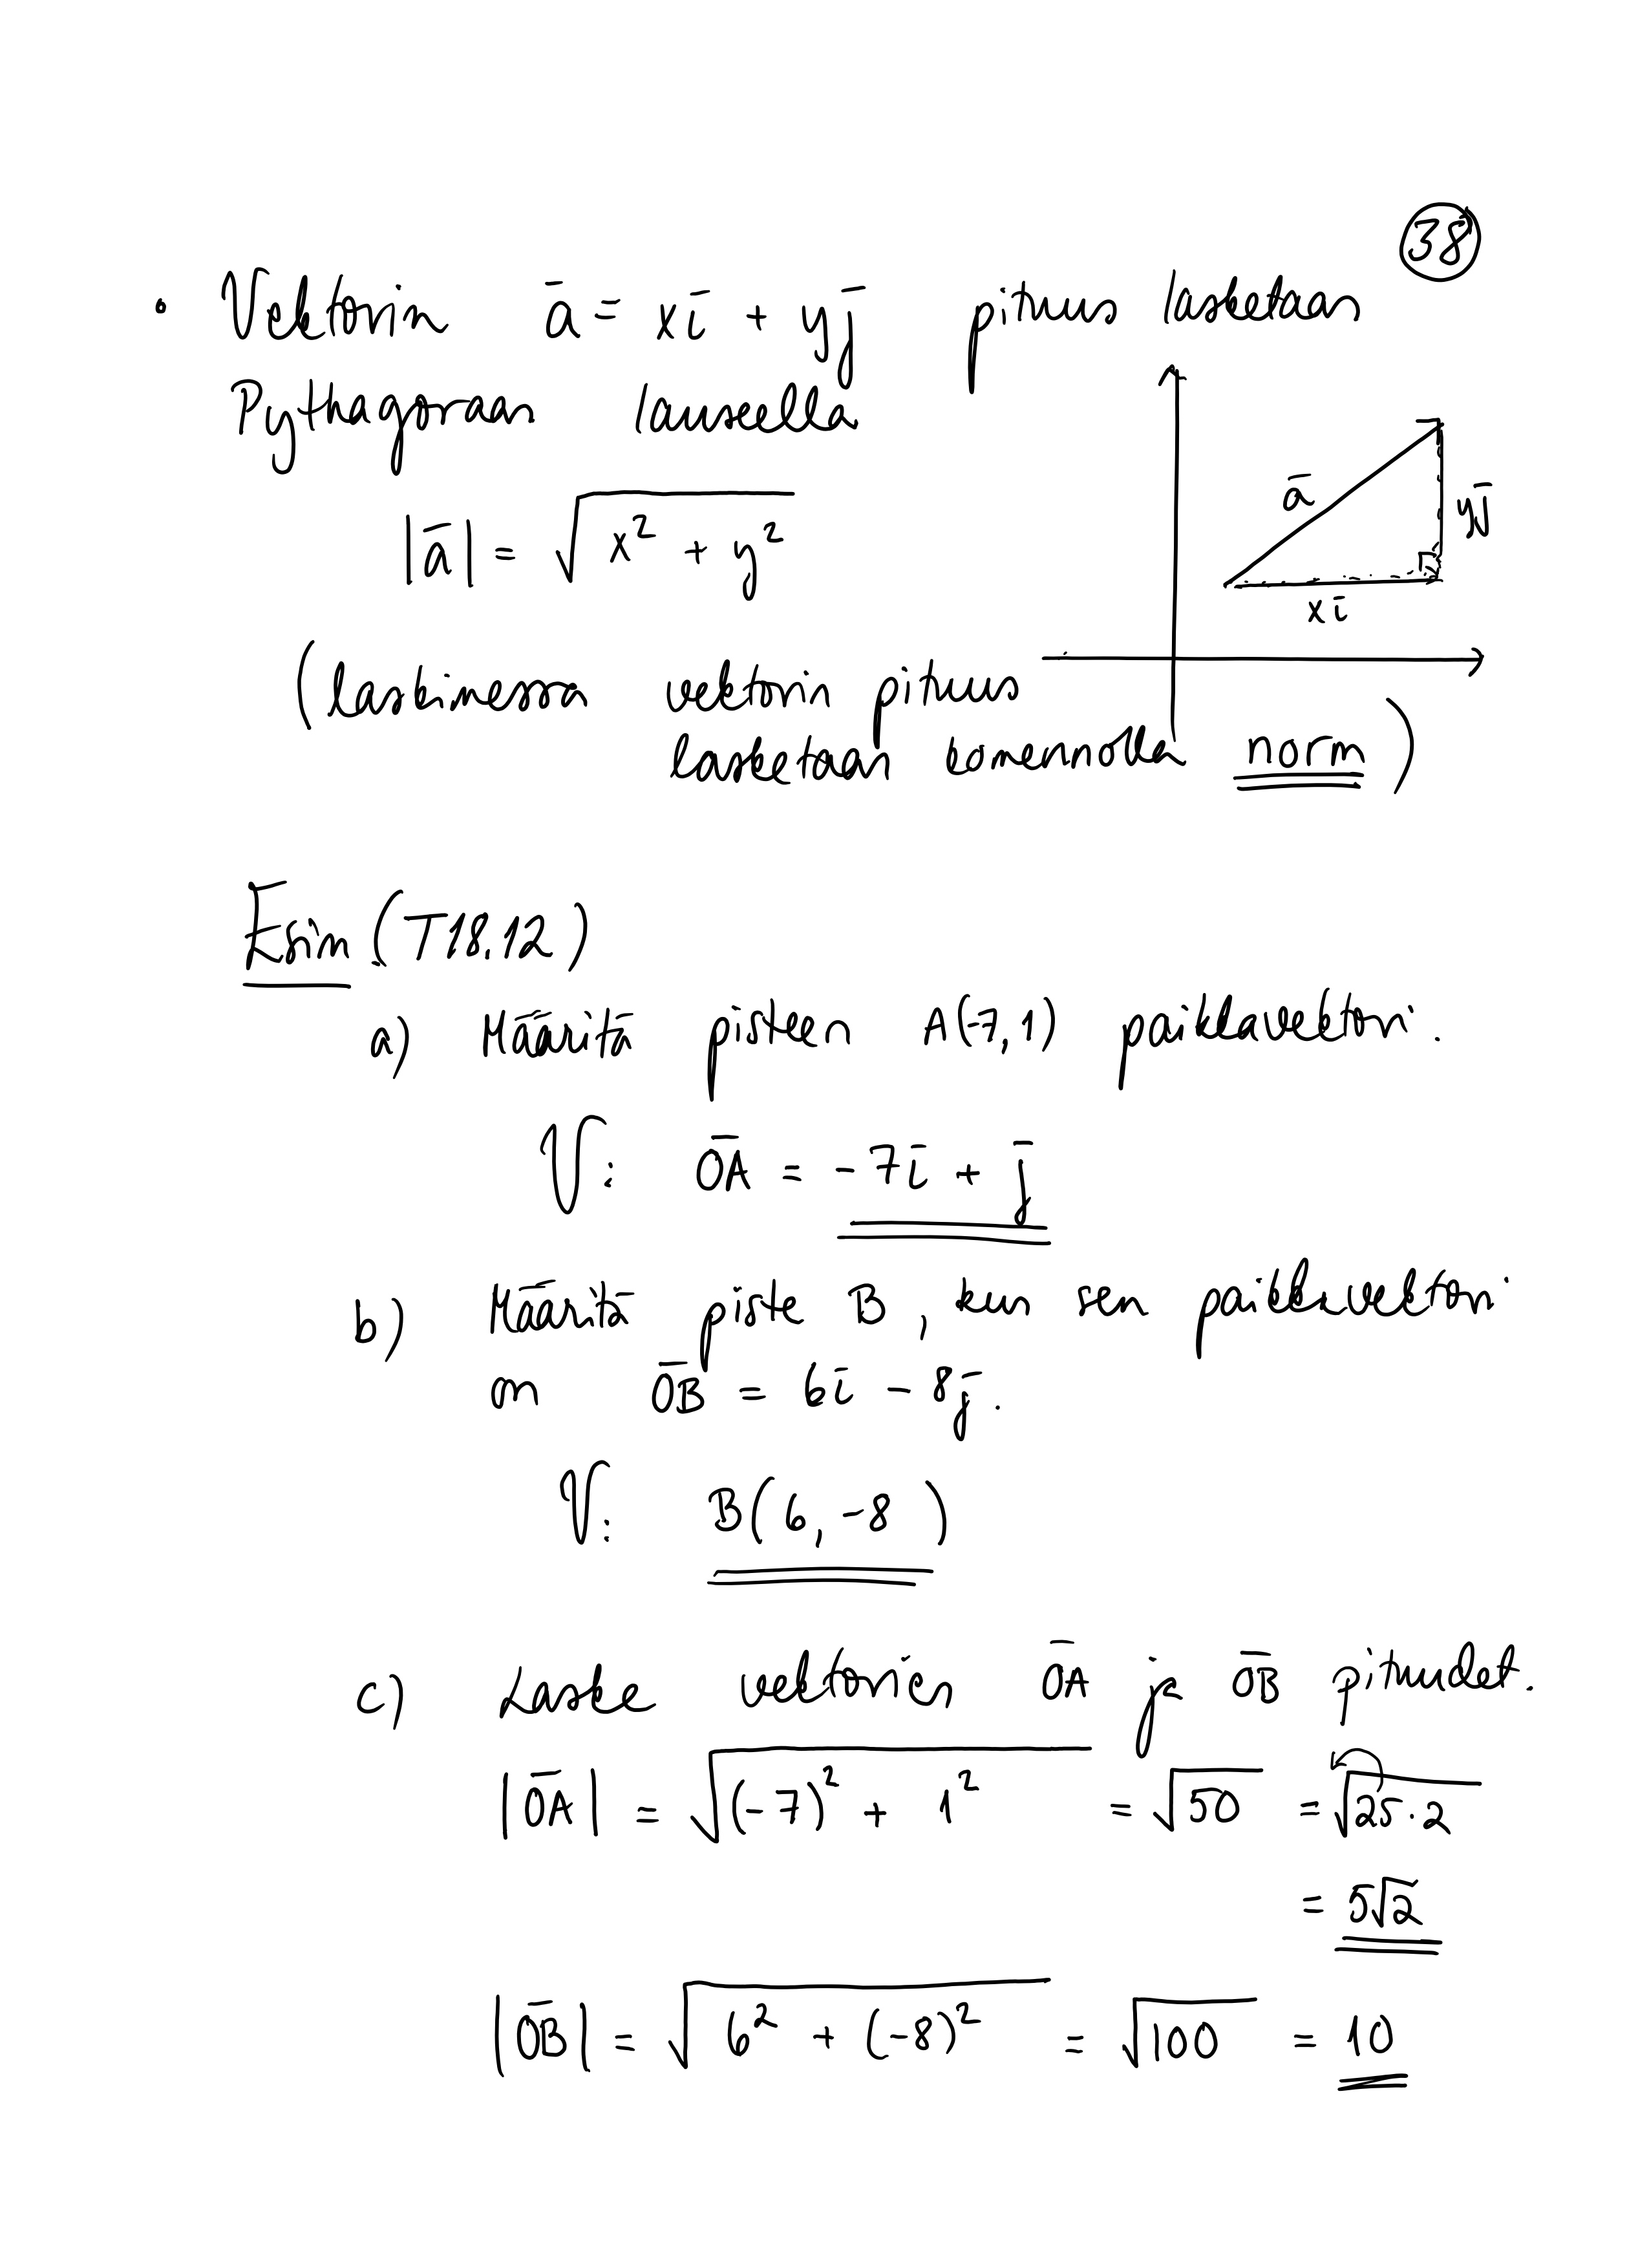 38
• Vektorin ā = xī + yj̄ pituus lasketaan
Pythagoraan lauseella
|ā| = √(x² + y²)
ā
yj̄
xī
(laskimessa vektorin pituus
lasketaan komennolla norm)
Esim (T18.12)
a) Määritä pisteen A(-7,1) paikkavektori.
V: O̅A̅ = -7ī + j̄
b) Määritä piste B, kun sen paikkavektori
on O̅B̅ = 6ī - 8j̄.
V: B(6, -8)
c) Laske vektorien O̅A̅ ja O̅B̅ pituudet.
|O̅A̅| = √((-7)² + 1²) = √50 = √(25·2)
= 5√2
|O̅B̅| = √(6² + (-8)²) = √100 = 10